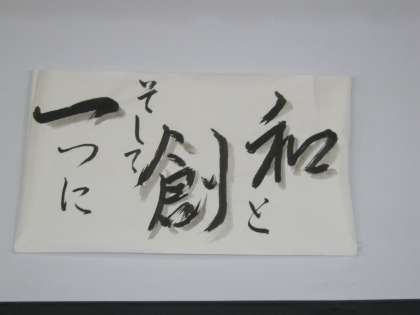 和と
創
そして
一つに